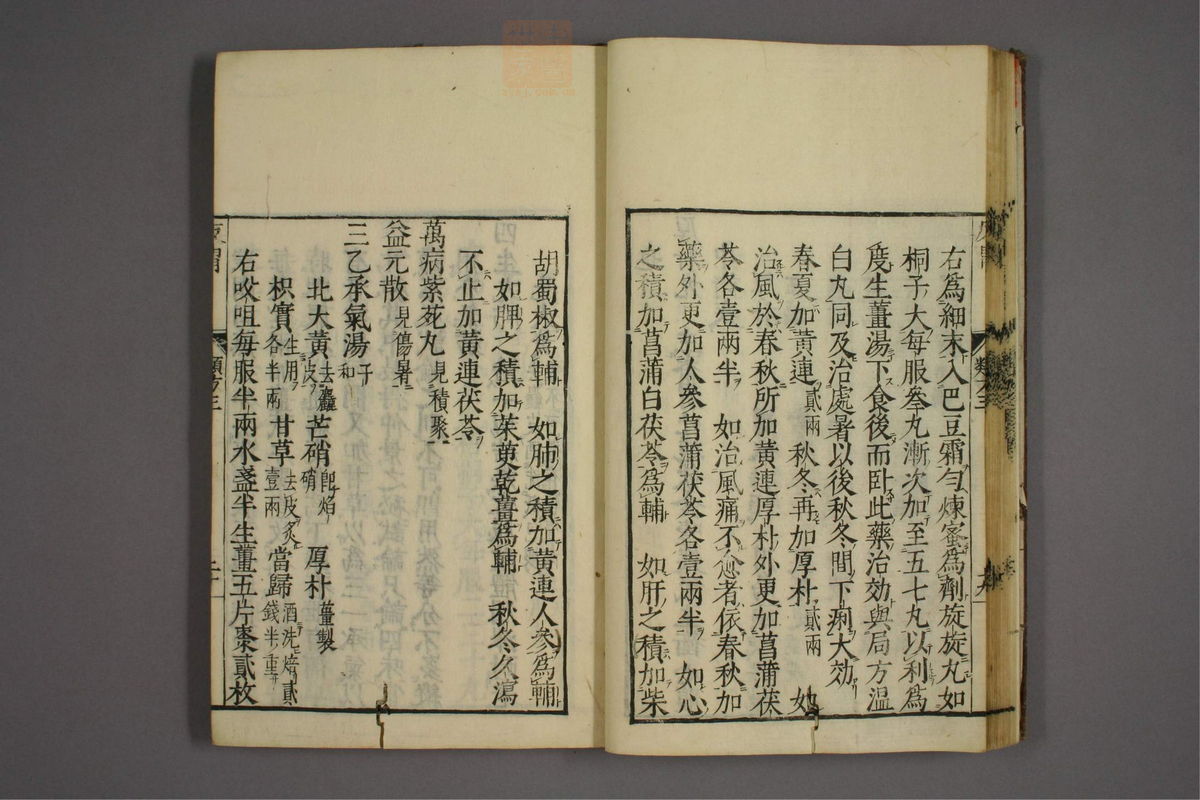 右爲細末入巴豆霜勻煉蜜爲劑旋旋丸如
桐子大每服叁丸漸次加至五七丸以利爲
度生薑湯下食後而卧此藥治効與局方温
白丸同及治處暑以後秋冬間下痢大効
春夏加黃連貳兩　秋冬再加厚朴貳兩　如
治風於春秋所加黃連厚朴外更加菖蒲茯
苓各壹兩半　如治風痛不愈者依春秋加
藥外更加人參菖蒲茯苓各壹兩半　如心
之積加菖蒲白茯苓爲輔　如肝之積加柴
胡蜀椒爲輔　如肺之積加黃連人參爲輔
如脾之積加茱萸乾薑爲輔　秋冬久瀉
不止加黃連茯苓
萬病紫菀丸見積聚
益元散見傷暑
三乙承氣湯子和
北大黃去麤皮芒硝即焰硝　厚朴薑製
枳實生用各半兩　甘草去皮炙壹兩　當歸酒洗焙貳錢半重
右㕮咀每服半兩水盞半生薑五片棗貳枚